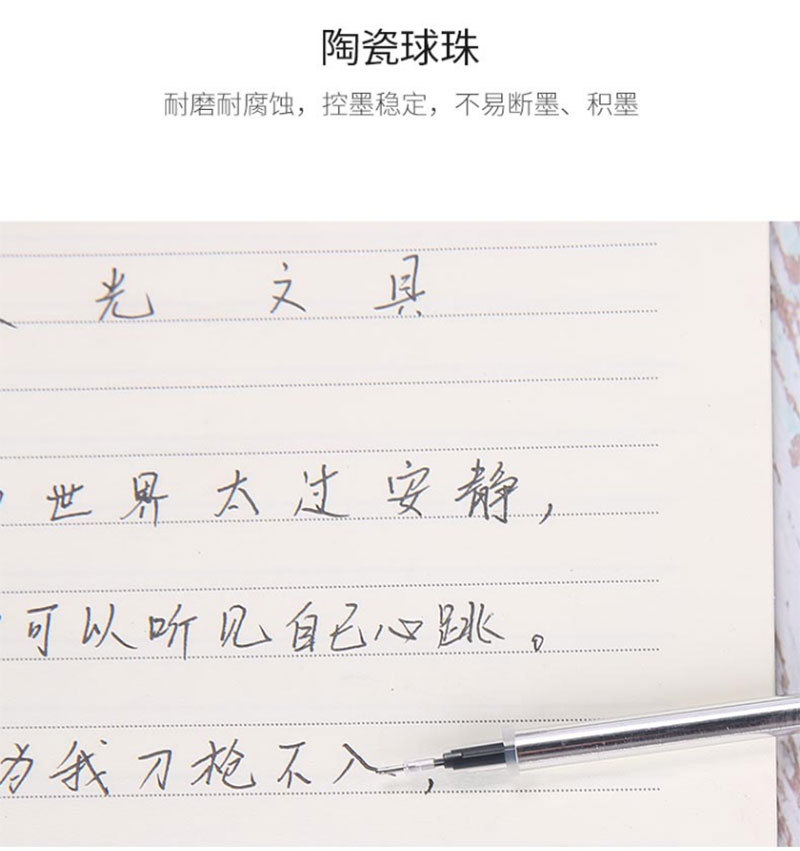 陶瓷球珠
耐磨耐腐蚀，控墨稳定，不易断墨、积墨
光文具
世界太过安静，
可以听见自己心跳。
为我刀枪不入，